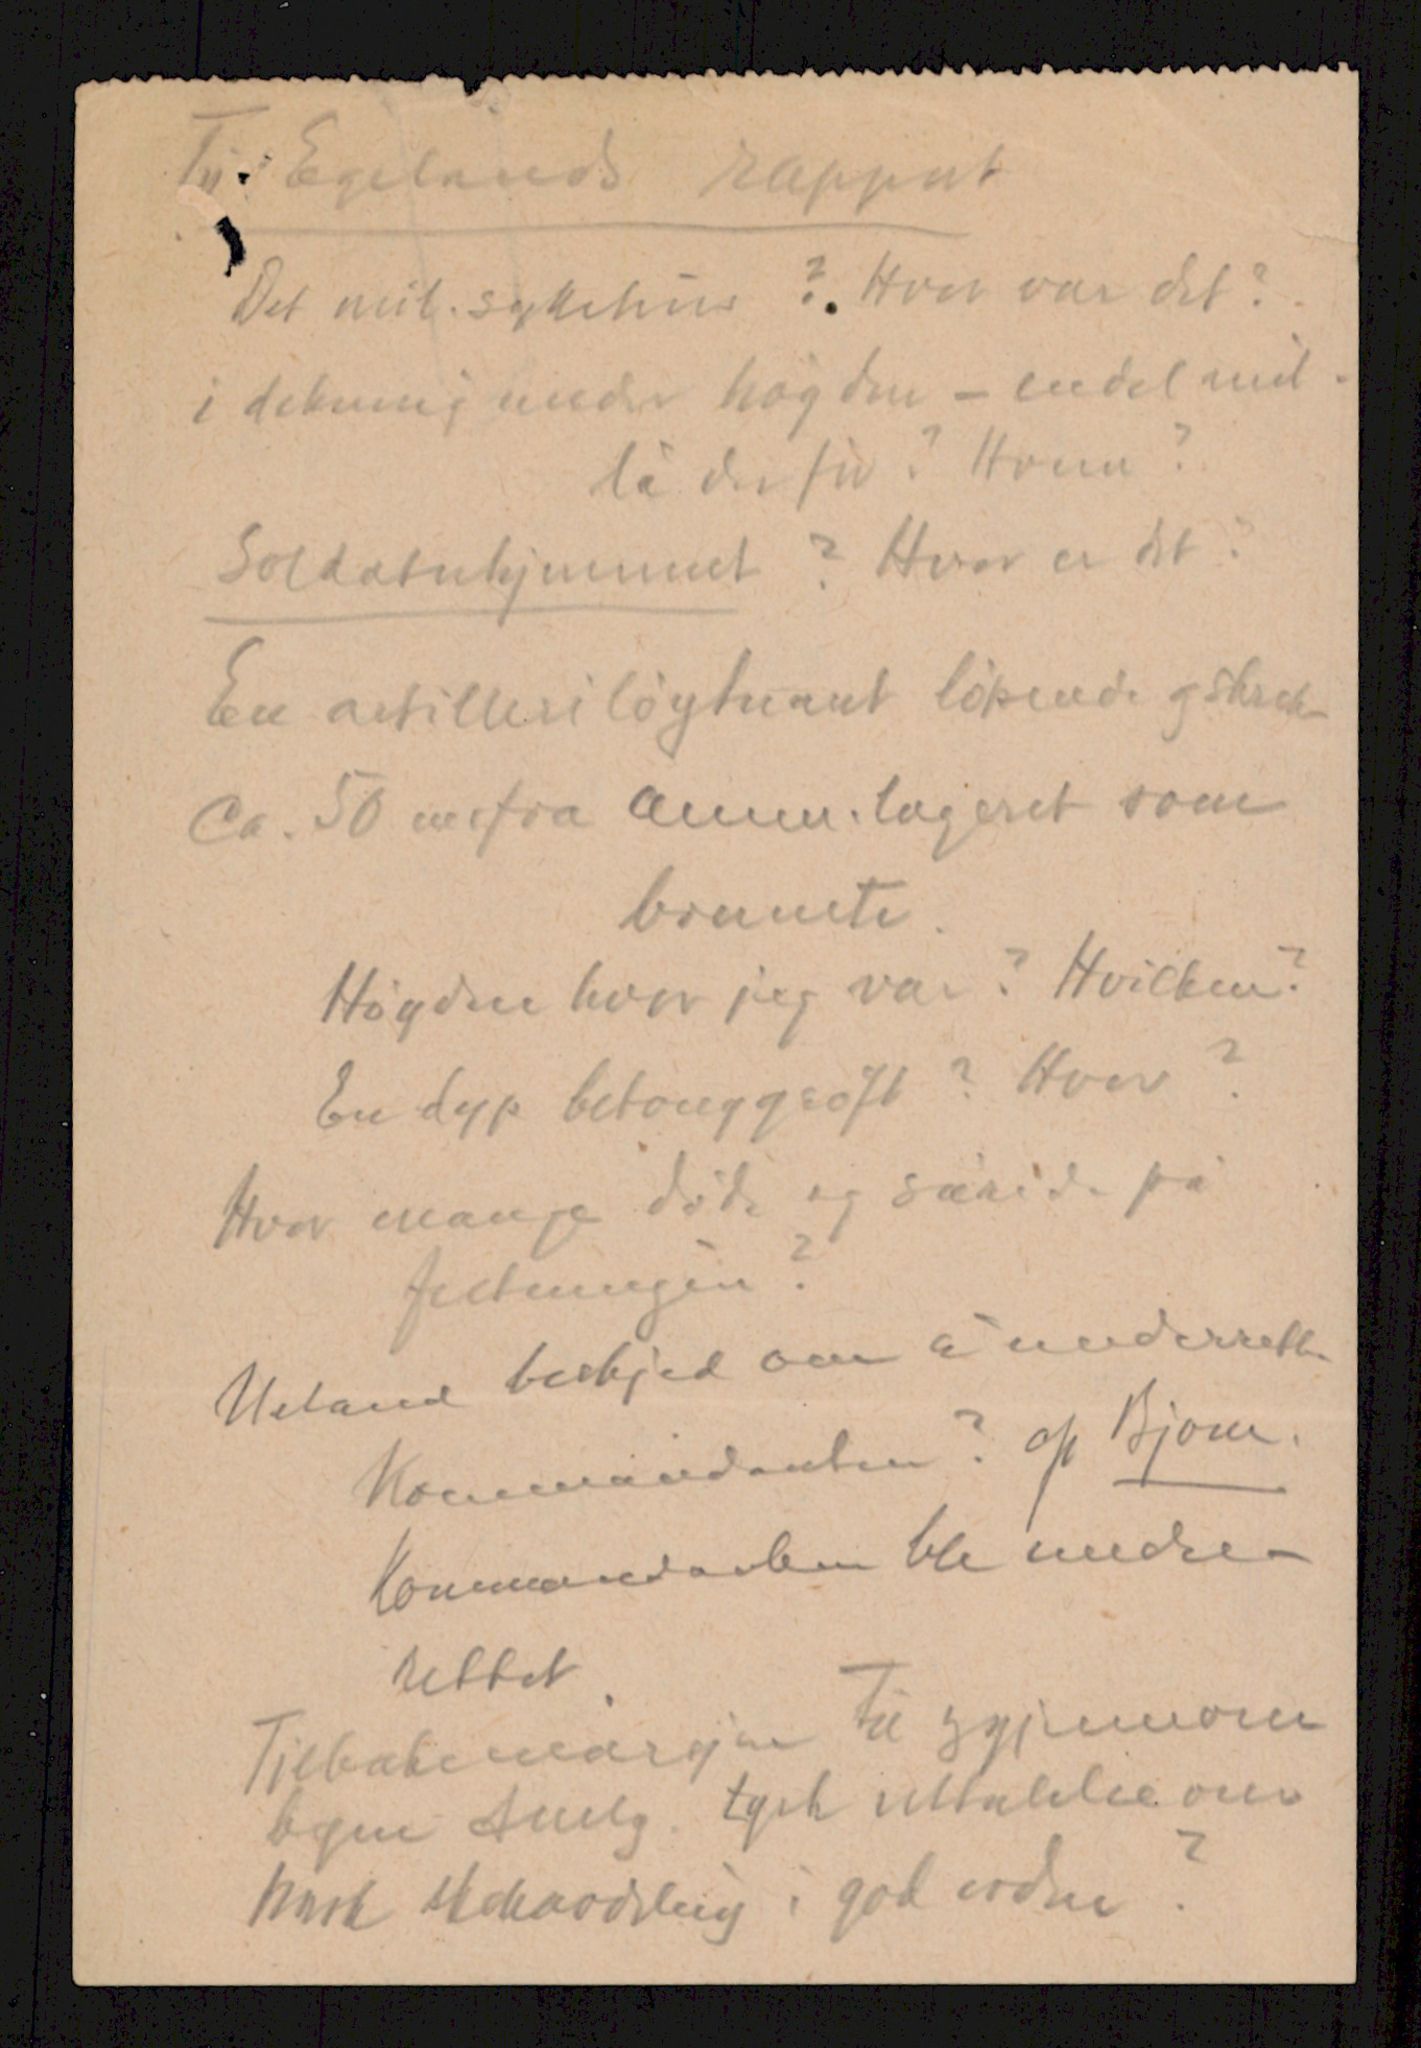 Til Egelands rapport
Det mil. sykehus ? Hvor var det?
i dekning under högden - endel mil.
lå der før? Hvem?
Soldaterhjemmet ? Hvor er det?
En artilleri löytnant löpende
Ca. 50 m fra amm. lageret som
brennte.
Högden hvor jeg var? Hvilken?
En dyp betonggröft? Hvor?
Hvor mange döde og sårede på
festningen?
Ueland beskjed om å underrette
Kommandanten? Bjorn.
Kommandanten ble under-
rettet.
Til gjennom
byen tysk uttalelse om
norsk i god orden?